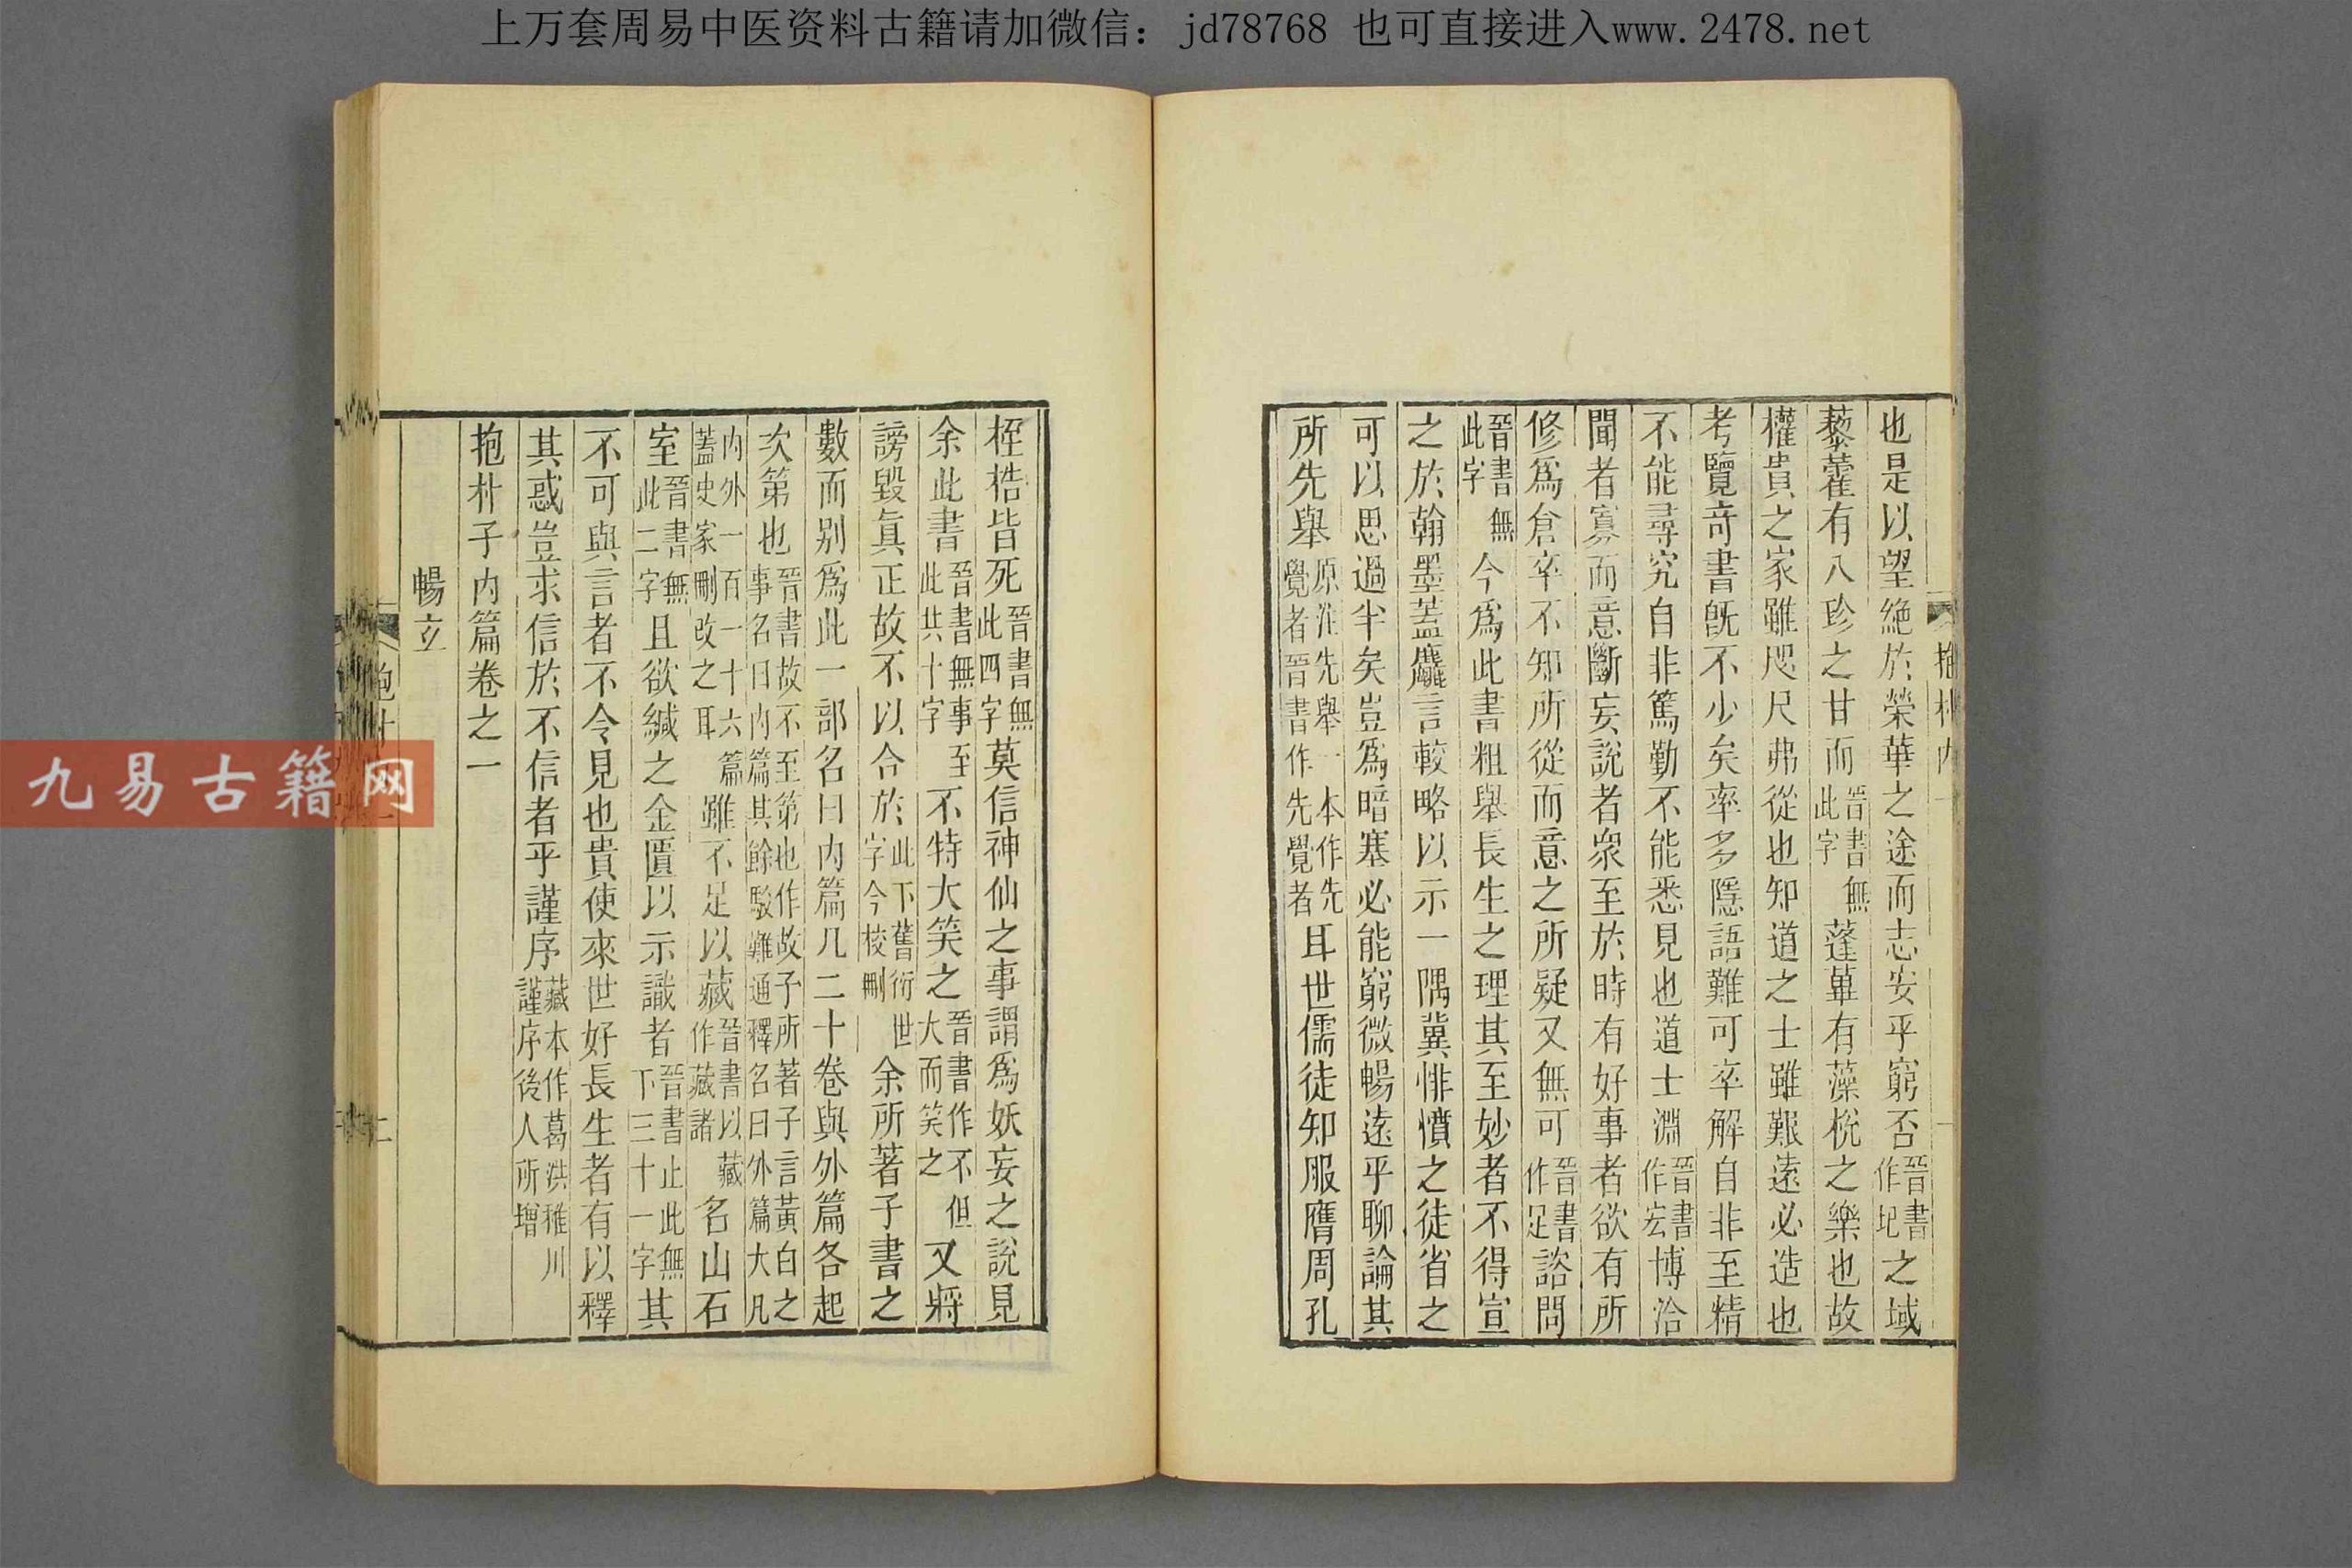 上万套周易中医资料古籍请加微信：jd78768 也可直接进入www.2478.net
也是以望絶於榮華之途而志安乎窮否晉書作圮之域
藜藿有八珍之甘而晉書無此字蓬蓽有藻梲之樂也故
權貴之家雖咫尺弗從也知道之士雖艱遠必造也
考覽奇書旣不少矣率多隱語難可卒解自非至精
不能尋究自非篤勤不能悉見也道士淵晉書作宏博洽
聞者寡而意斷妄說者衆至於時有好事者欲有所
修爲倉卒不知所從而意之所疑又無可晉書作足諮問
晉書無此字今爲此書粗舉長生之理其至妙者不得宣
之於翰墨蓋麤言較略以示一隅冀悱憤之徒省之
可以思過半矣豈爲暗塞必能窮微暢遠乎聊論其
所先舉原注先舉一本作先覺者晉書作先覺者耳世儒徒知服膺周孔
桎梏皆死晉書無此四字莫信神仙之事謂爲妖妄之說見
余此書晉書無事至此共十字不特大笑之晉書作不但大而笑之又將
謗毀眞正故不以合於此下舊衍世字今校刪余所著子書之
數而別爲此一部名曰內篇凡二十卷與外篇各起
次第也晉書故不至第也作故子所著子言黃白之事名曰內篇其餘駮難通釋名曰外篇大凡
內外一百一十六篇蓋史家刪改之耳雖不足以藏晉書以藏作藏諸名山石
室晉書無此二字且欲緘之金匱以示識者晉書止此無下三十一字其
不可與言者不令見也貴使來世好長生者有以釋
其惑豈求信於不信者乎謹序藏本作葛洪稚川謹序後人所增
抱朴子內篇卷之一
暢玄
九易古籍网